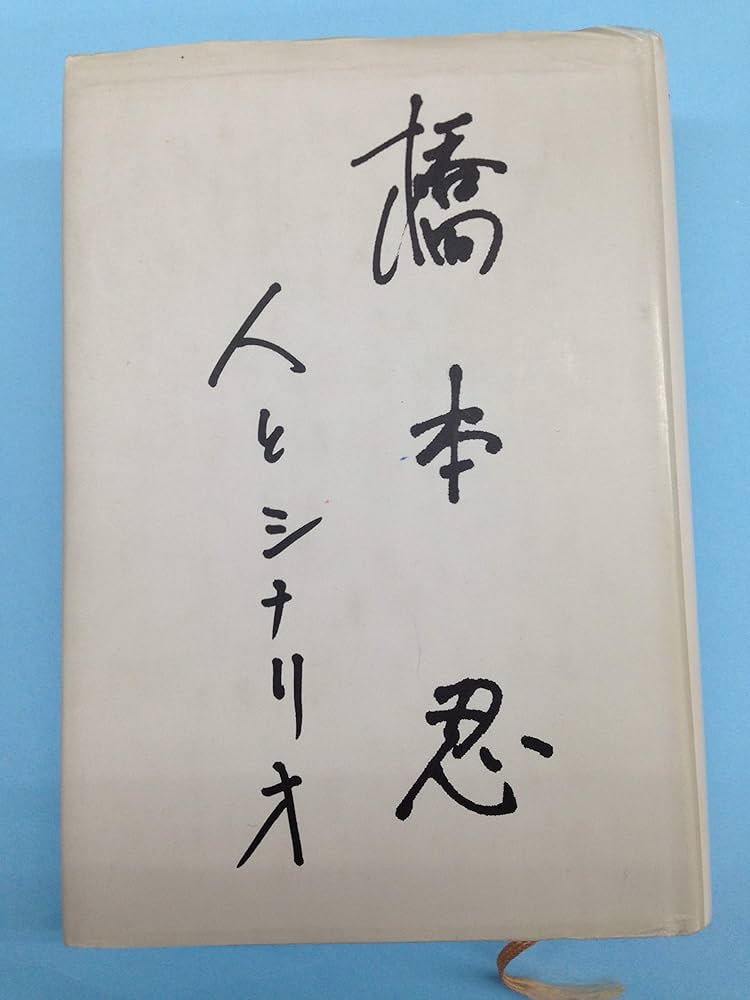 橋本忍
人とシナリオ